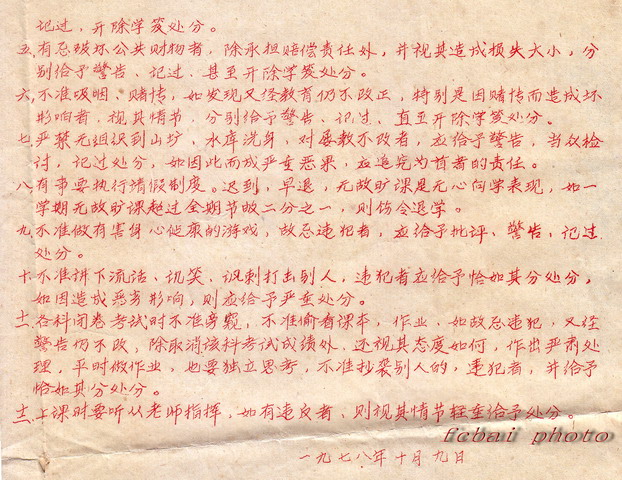 记过，开除学笈处分。
五、有忌破坏公共财物者，除承担赔偿责任外，并视其造成损失大小，分
别给予警告、记过、甚至开除学笈处分。
六、不准吸咽、赌愽，如发现又经教育仍不改正，特别是因赌愽而造成坏
影响者，视其情节，分别给予警告、记过、直至开除学笈处分。
七、严禁无组识到山圹、水库洗身，对屡教不改者，应给予警告，当众检
讨，记过处分，如因此而成严重恶果，应追究为首者的责任。
八、有事要执行请假制度。迟到，早退，无故旷课是无心向学表现，如一
学期无故旷课超过全期节数二分之一，则饬令退学。
九、不准做有害身心健康的游戏，故忌违犯者，应给予批评、警告、记过
处分。
十、不准讲下流话、讥笑、讽刺打击别人，违犯者应给予恰如其分处分，
如因造成恶劣影响，则应给予严重处分。
十一、各科闭卷考试时不准旁窥，不准偷看课本，作业、如故忌违犯，又经
警告仍不改，除取消该科考试成绩外、还视其态度如何，作出严肃处
理，平时做作业，也要独立思考，不准抄袭别人的，违犯者，并给予
恰如其分处分。
十二、上课时要听从老师指挥，如有违反者、则视其情节轻重给予处分。
fcbai photo
一九七八年十月九日